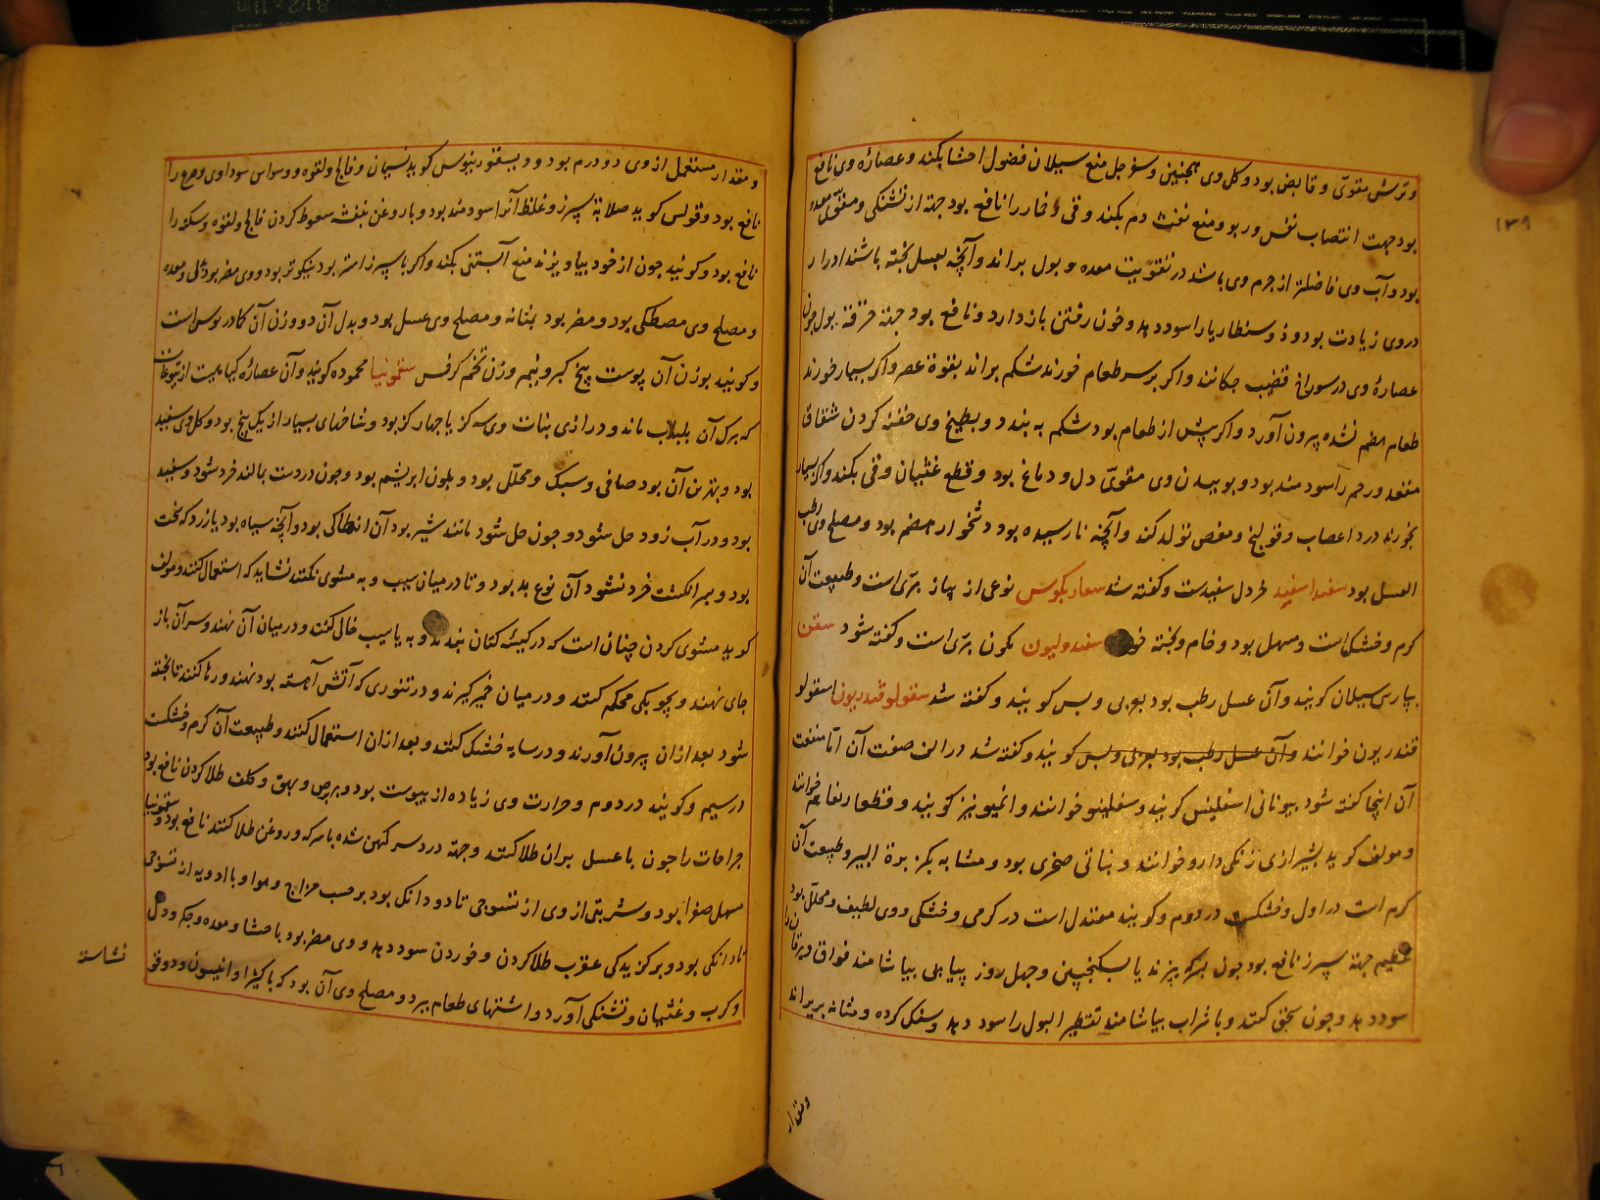 وترش مقوی و قابض بود و کل وی همچنین و سفرجل منع سیلان فضول احشا بکند و عصاره وی نافع
بود جهت انتصاب نفس و ربو و منع نفث دم بکند و قی و خمار را نافع بود جهة از تشنکی و مقوی معده
بود و آب وی فاضلتر از جرم وی باشد در تقویت معده و بول براند و آنچه بعسل پخته باشند ادرار
در وی زیادت بود و ذوسنطاریا را سود دهد و خون رفتن باز دارد و نافع بود جهة حرقة بول چون
عصارهٔ وی در سوراخ قضیب چکانند و اکر بر سر طعام خورند شکم براند بقوة عصر و اکر بسیار خورند
طعام هضم نشده بیرون آورد و اکر پیش از طعام بود شکم به بندد و بطبیخ وی حقنه کردن شقاق
مقعد و رحم را سودمند بود و بوییدن وی مقوی دل و دماغ بود و قطع غثیان و قی بکند و اکر بسیار
بخورند درد اعصاب و قولنج و مغص تولد کند و آنچه نارسیده بود دشخوار هضم بود و مصلح وی رطب
العسل بود سفند اسفید خردل سفیدست و کفته شد سعاریکوس نوعی از پیاز بری است و طبیعت آن
کرم و خشک است و مسهل بود و خام و پخته سفندولیون کمون بری است و کفته شود سقن
بپارسی سیلان کویند و آن عسل رطب بود بعربی و بس کویند و کفته شد سقولوقندریون اسقولو
قندریون خوانند و آن عسل رطب بود بعربی و بس کویند و کفته شد در الف صفت آن اما منفعت
آن اینجا کفته شود بیونانی اسقلینس کویند و سقلینو خوانند و انمیو نیز کویند و قطعا رنعا هم خوانند
و مولف کوید بشیرازی زنکی دارو خوانند و نباتی صخری بود و مشابه بکزبرة البیر و طبیعت آن
کرم است در اول و خشکست در دوم و کویند معتدل است در کرمی و خشکی و وی لطیف و محلل بود
عظیم جهة سپرز نافع بود چون بسرکه بپزند یا بسکنجبین و چهل روز پیاپی بیاشامند فواق و یرقان را
سود دهد و چون سحق کنند و با شراب بیاشامند تقطیر البول را سود دهد و سنک کرده و مثانه بریزاند
و مقدار
۱۳۹
و مقدار مستعمل از وی دو درم بود و دیسقوریدوس کوید نسیان و فالج و لقوه و وسواس سوداوی و صرع را
نافع بود و قولس کوید صلابة سپرز و غلظ آنرا سودمند بود و با روغن بنفشه سعوط کردن فالج و لقوه و سکته را
نافع بود و کویند چون از خود بیاویزند منع آبستنی بکند و اکر با سپرز استر بود نیکوتر بود و وی مضر بود بدل و معده
و مصلح وی مصطکی بود و مضر بود بمثانه و مصلح وی عسل بود و بدل آن دو وزن آن کمادریوس است
و کویند بوزن آن پوست بیخ کبر و نیم وزن تخم کرفس سقمونیا محموده کویند و آن عصاره کیاهیست از یتوعات
که برک آن بلبلاب ماند و درازی نبات وی سه کز یا چهار کز بود و شاخهای بسیار از یک بیخ بود و کل وی سفید
بود و بهترین آن بود صافی و سبک و محلل بود و بلون ابریشم بود و چون در دست بمالند خرد شود و سفید
بود و در آب زود حل شود و چون حل شود مانند شیر بود آن انطاکی بود و آنچه سیاه بود یا زرد که سخت
بود و بسر انکشت خرد نشود آن نوع بد بود و تا در میان سیب و به مشوی نکنند نشاید که استعمال کنند و مولف
کوید مشوی کردن چنان است که در کیسهٔ کتان بندند و به یا سیب خالی کنند و در میان آن نهند و سر آن باز
جای نهند و بچوبکی محکم کنند و در میان خمیر کیرند و در تنوری که آتش آهسته بود نهند و رها کنند تا پخته
شود بعد از آن بیرون آورند و در سایه خشک کنند و بعد از آن استعمال کنند و طبیعت آن کرم و خشکست
در سیم و کویند در دوم و حرارت وی زیاده از یبوست بود و برص و بهق و کلف طلا کردن نافع بود
جراحات را چون با عسل بران طلا کنند و جهة درد سر کهن شده با سرکه و روغن طلا کنند نافع بود و سقمونیا
مسهل صفرا بود و شربتی از وی از تسوجی تا دو دانک بود بر حسب مزاج و هوا و با ادویه از تسوجی
تا دانکی بود و بر کزیدکی عقرب طلا کردن و خوردن سود دهد و وی مضر بود باحشا و معده و جکر و دل
و کرب و غثیان و تشنکی آورد و اشتهای طعام ببرد و مصلح وی آن بود که با کتیرا و انیسون و دوقو
نشاسته